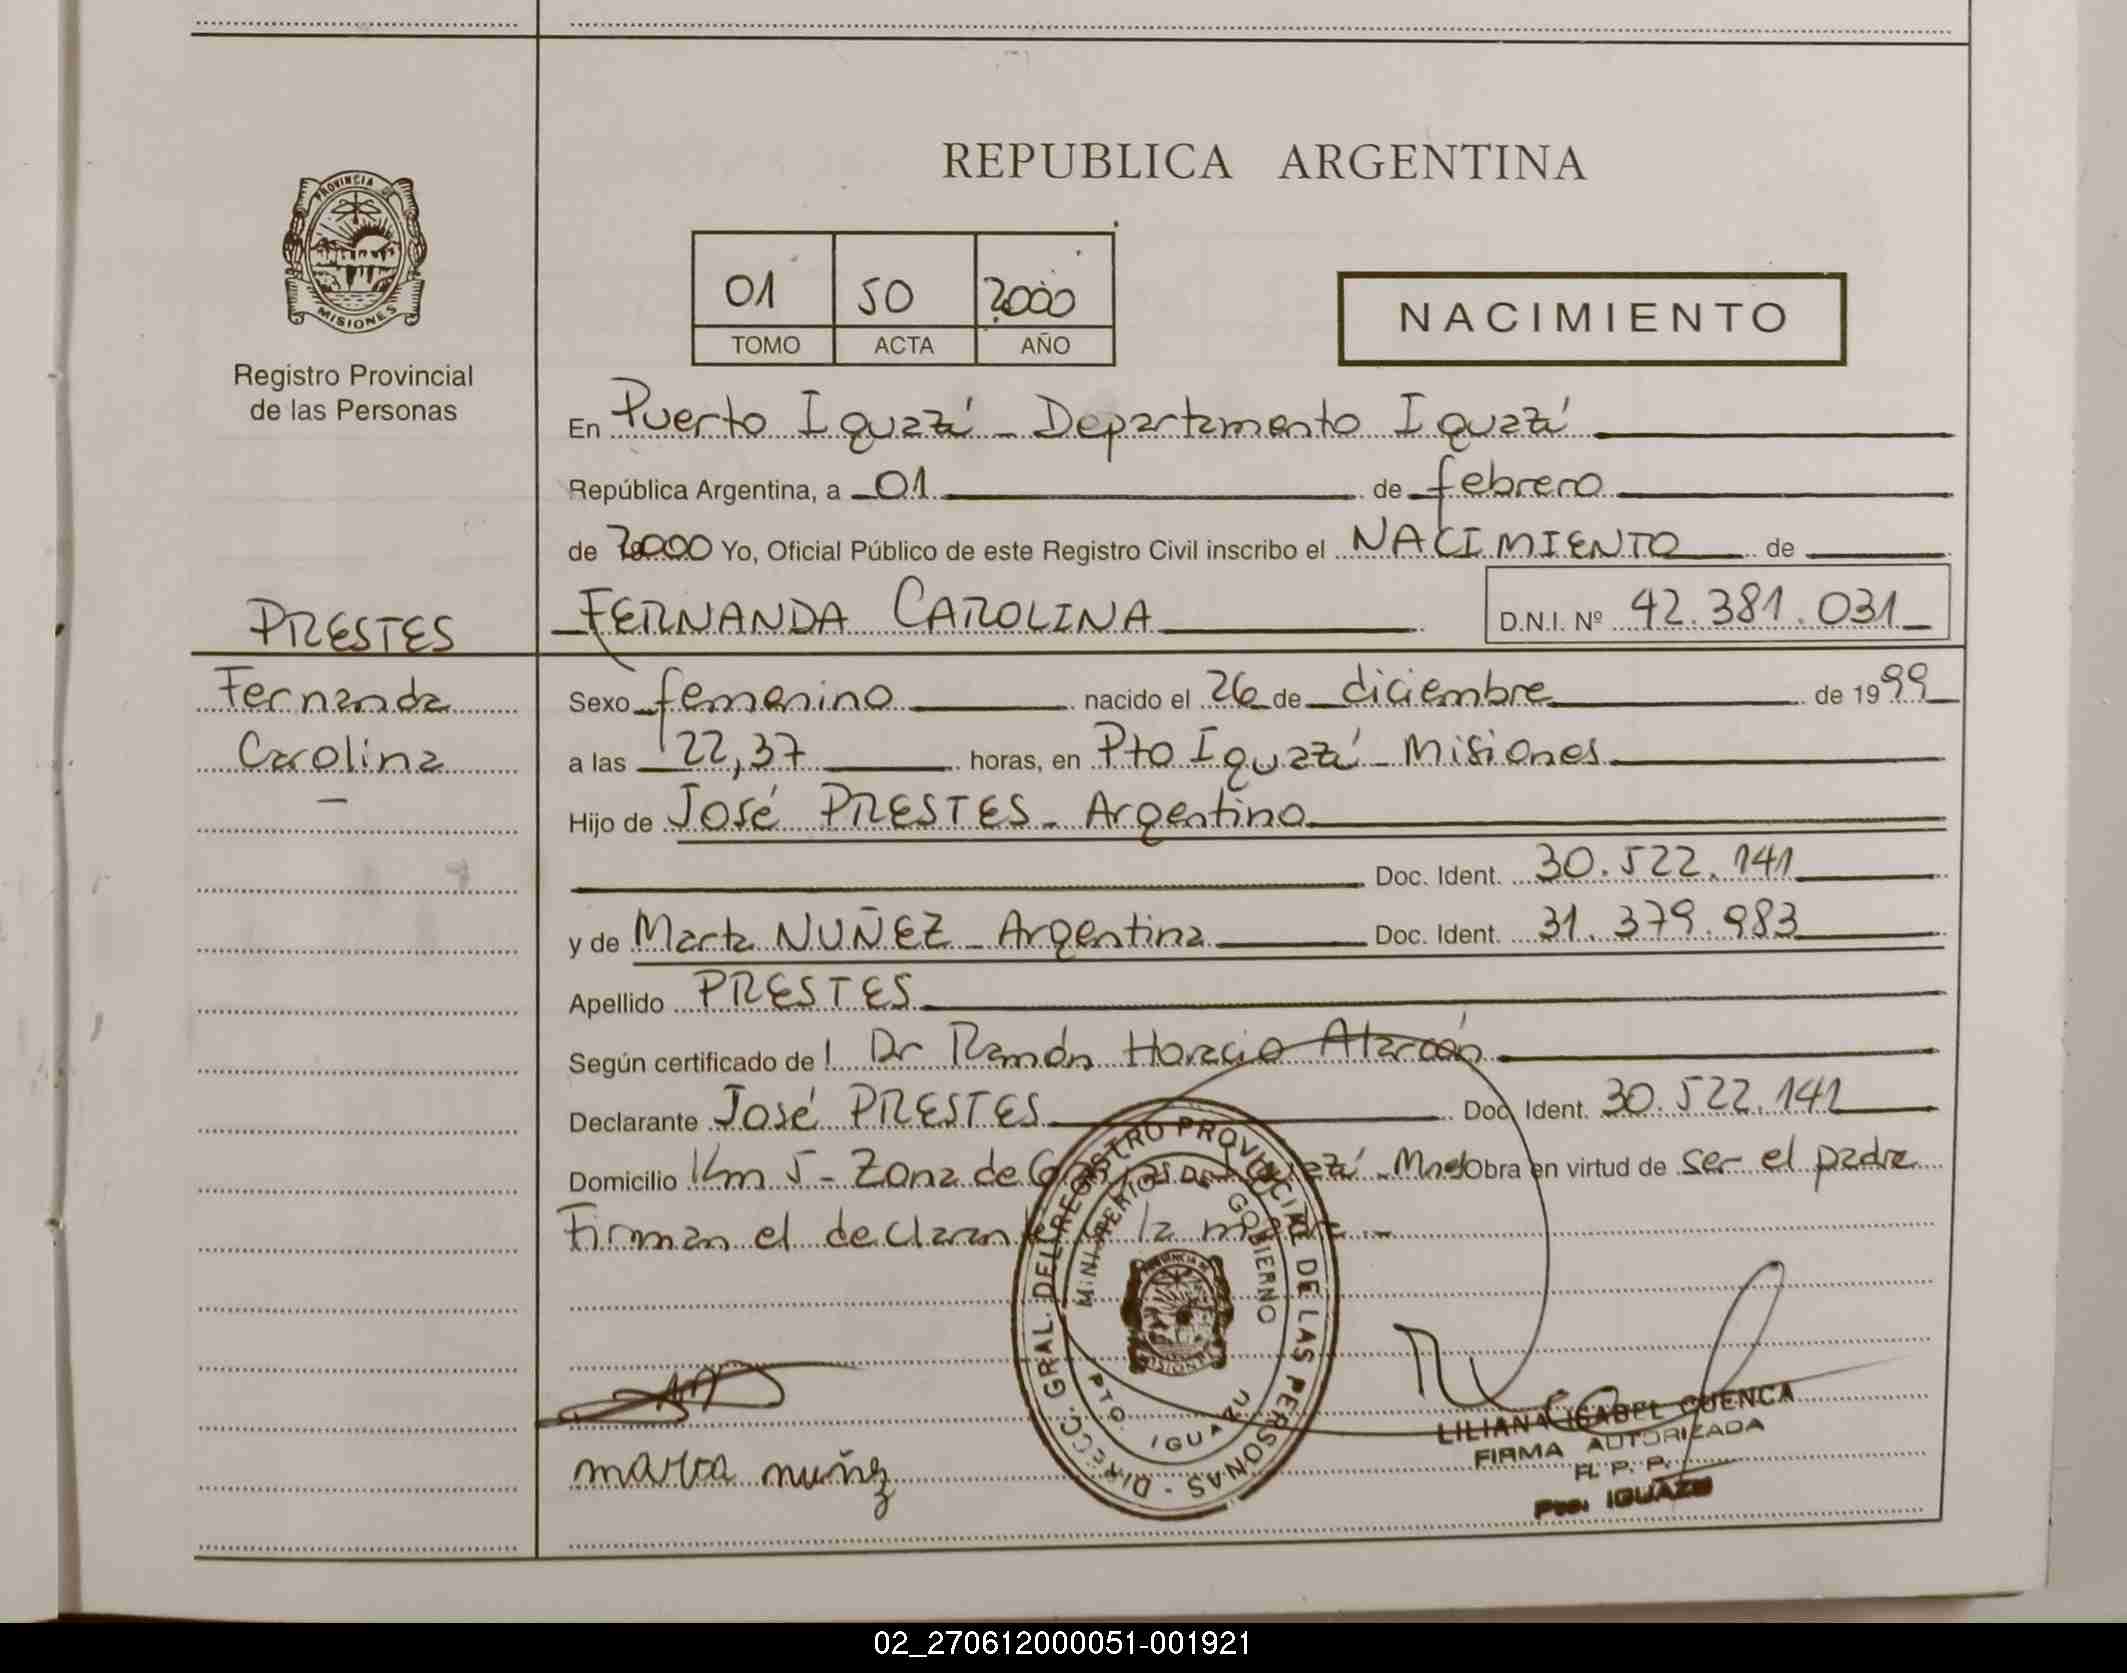 REPUBLICA ARGENTINA
PROVINCIA DE
MISIONES
Registro Provincial
de las Personas
01 50 2000
TOMO ACTA AÑO
NACIMIENTO
En Puerto Iguazú - Departamento Iguazú
República Argentina, a 01 de febrero
de 2000 Yo, Oficial Público de este Registro Civil inscribo el NACIMIENTO de
PRESTES
FERNANDA CAROLINA D.N.I. Nº 42.381.031
Fernanda
Carolina
Sexo femenino nacido el 26 de diciembre de 1999
a las 22,37 horas, en Pto Iguazú - Misiones
Hijo de José PRESTES - Argentino
Doc. Ident. 30.522.141
y de Marta NUÑEZ - Argentina Doc. Ident. 31.379.983
Apellido PRESTES
Según certificado de l Dr Ramón Horacio Alarcón
Declarante José PRESTES Doc. Ident. 30.522.141
Domicilio Km 5 - Zona de Iguazú - Mnes Obra en virtud de ser el padre
Firman el declarante y la madre.-
DIRECC. GRAL. DEL REGISTRO PROVINCIAL DE LAS PERSONAS -
MINISTERIO DE GOBIERNO
PTO. IGUAZU
marta nuñez
LILIANA ISABEL CUENCA
FIRMA AUTORIZADA
R. P. P.
Pto. IGUAZU
02_270612000051-001921